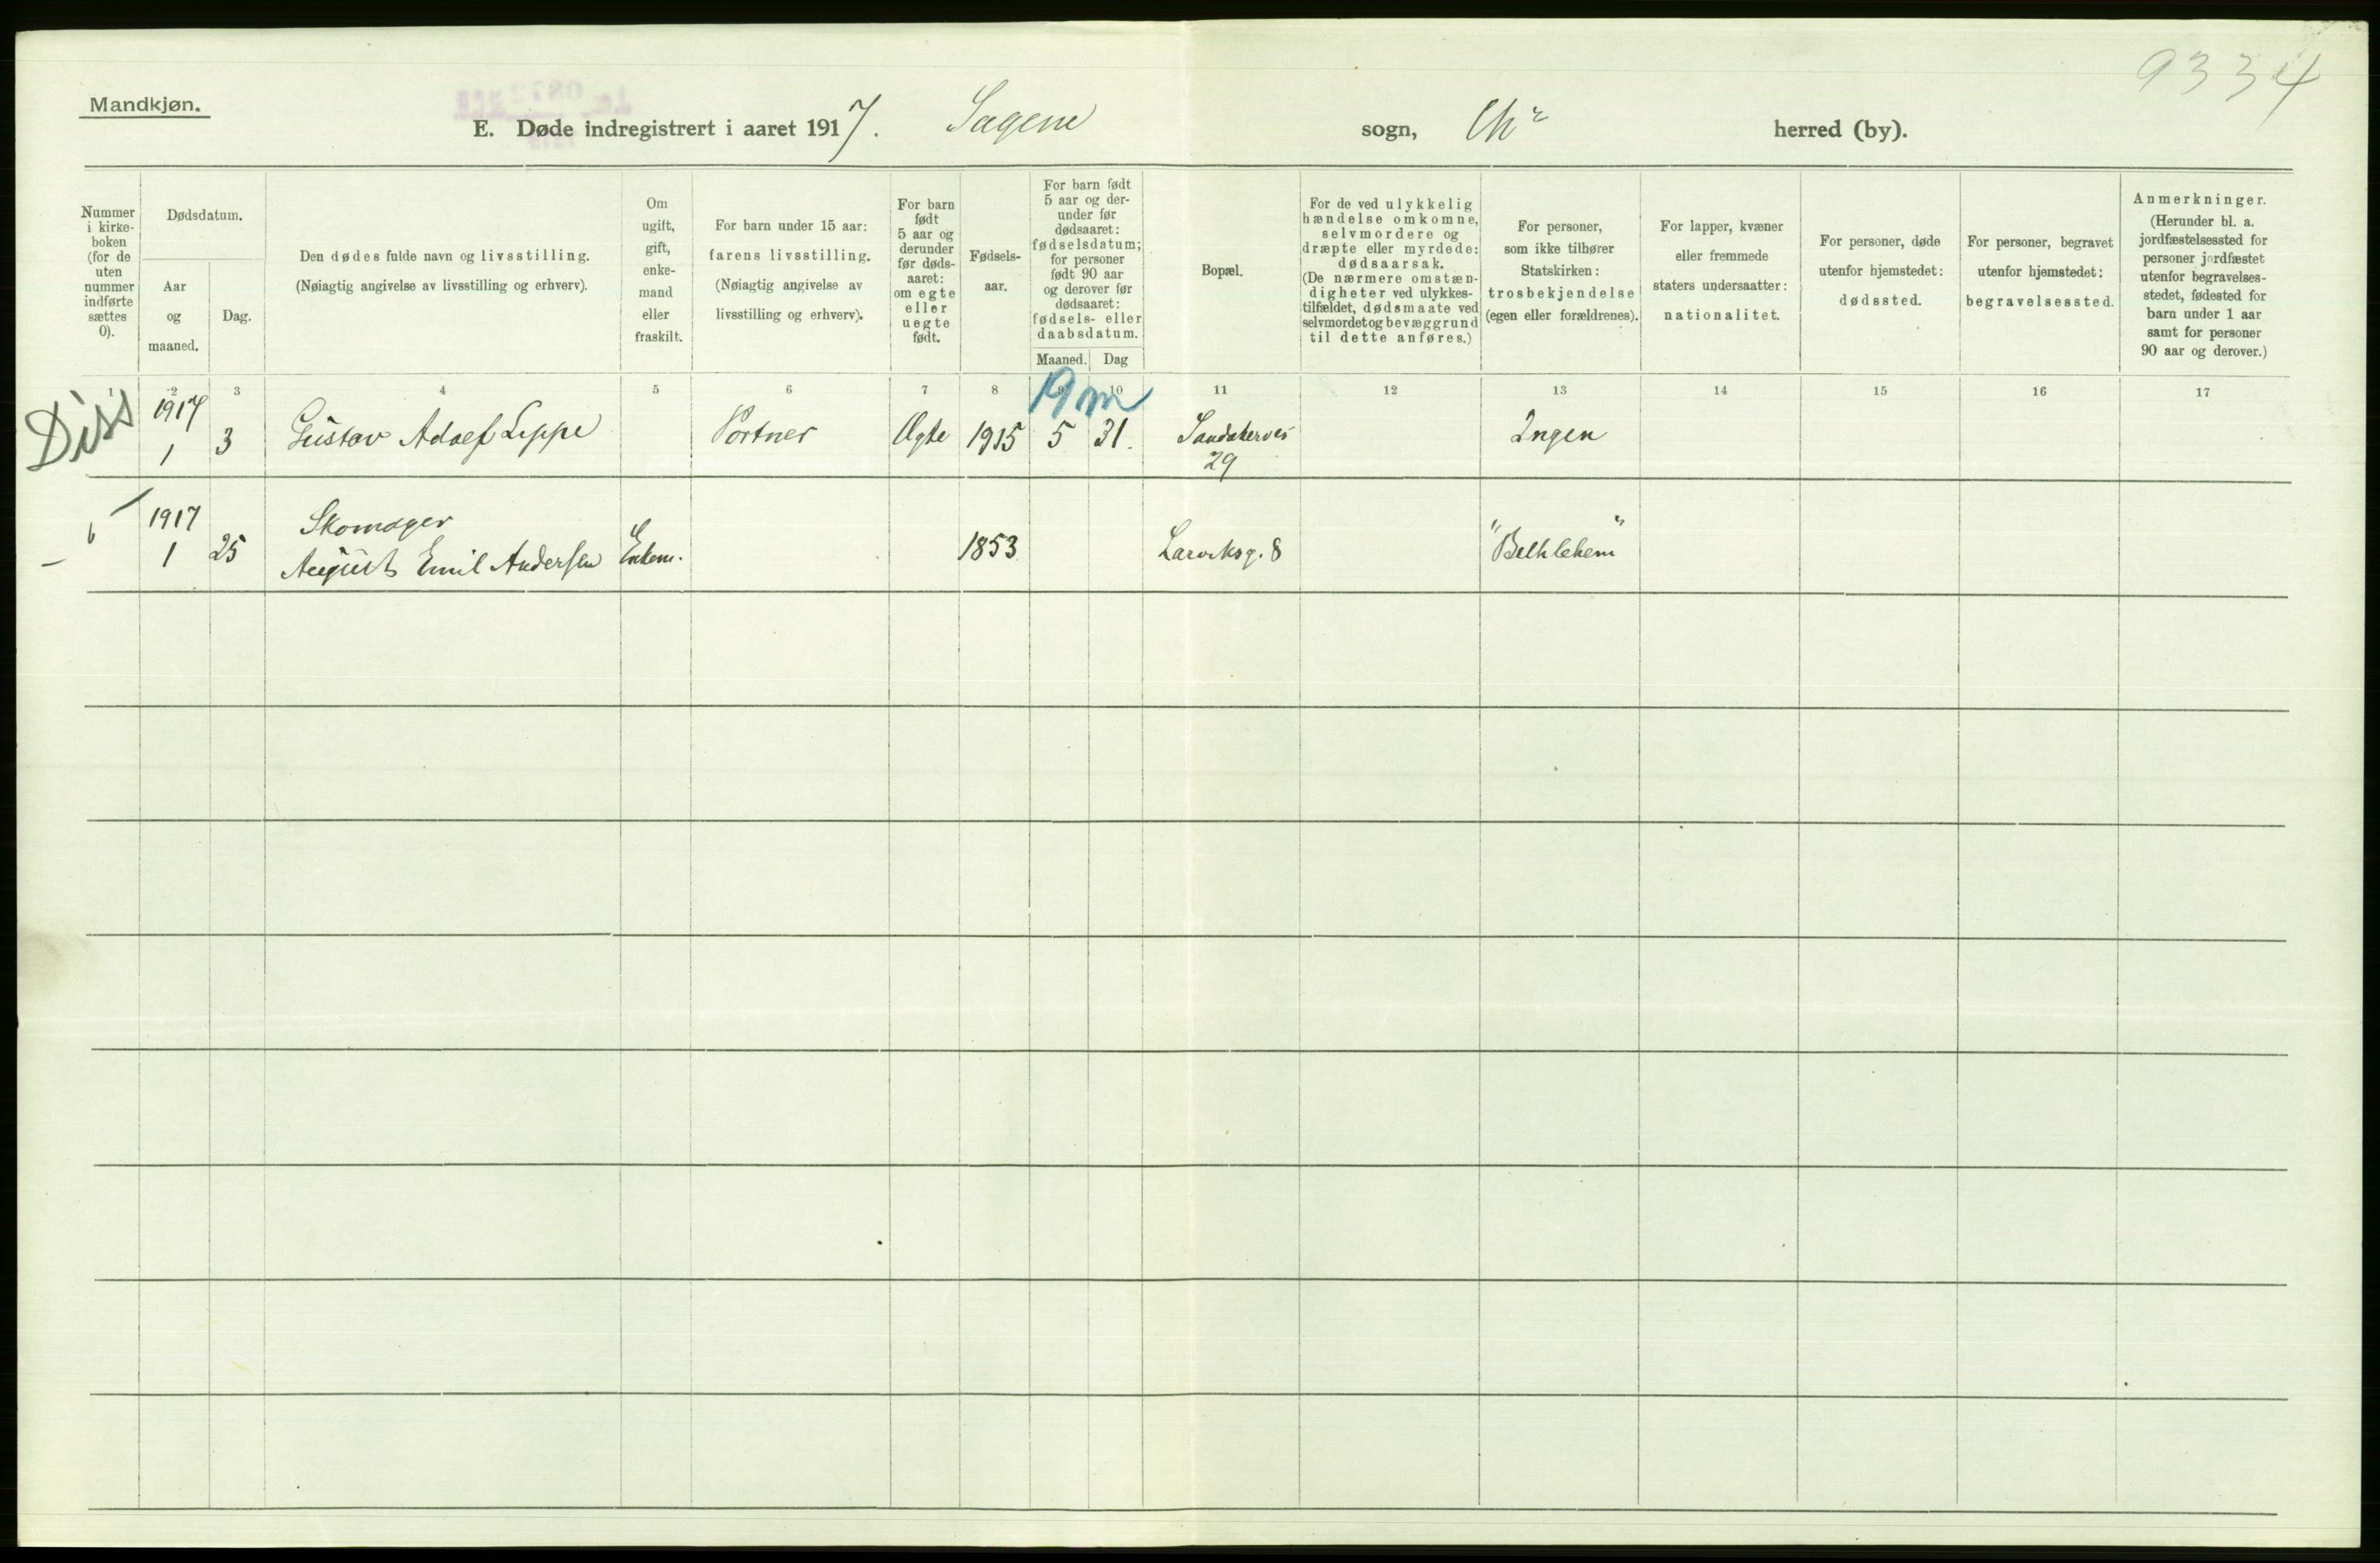 9334
Mandkjøn.
E. Døde indregistrert i aaret 1917. Sagene sogn, Chr herred (by).
Nummer
i kirke-
boken
(for de
uten
nummer
indførte
sættes
0).
Dødsdatum.
Aar
og
maaned.
Dag.
Den dødes fulde navn og livsstilling.
(Nøiagtig angivelse av livsstilling og erhverv).
Om
ugift,
gift,
enke-
mand
eller
fraskilt.
For barn under 15 aar:
farens livsstilling.
(Nøiagtig angivelse av
livsstilling og erhverv).
For barn
født
5 aar og
derunder
før døds-
aaret:
om egte
eller
uegte
født.
Fødsels-
aar.
For barn født
5 aar og der-
under før
dødsaaret:
fødselsdatum;
for personer
født 90 aar
og derover før
dødsaaret:
fødsels- eller
daabsdatum.
Maaned. Dag
Bopæl.
For de ved ulykkelig
hændelse omkomne,
selvmordere og
dræpte eller myrdede:
dødsaarsak.
(De nærmere omstæn-
digheter ved ulykkes-
tilfældet, dødsmaate ved
selvmordet og bevæggrund
til dette anføres.)
For personer,
som ikke tilhører
Statskirken:
trosbekjendelse
(egen eller forældrenes).
For lapper, kvæner
eller fremmede
staters undersaatter:
nationalitet.
For personer, døde
utenfor hjemstedet:
dødssted.
For personer, begravet
utenfor hjemstedet:
begravelsessted.
Anmerkninger.
(Herunder bl. a.
jordfæstelsessted for
personer jordfæstet
utenfor begravelses-
stedet, fødested for
barn under 1 aar
samt for personer
90 aar og derover.)
1 2 3 4 5 6 7 8 9 10 11 12 13 14 15 16 17
Diss
19 m
1917
1 3 Gustav Adolf Leppe Portner Ægte 1915 5 31. Sandakervei
29
Ingen
1917
1 25 Skomager
August Emil Andersen Enkem. 1853 Larviksg. 8 "Bethlehem"